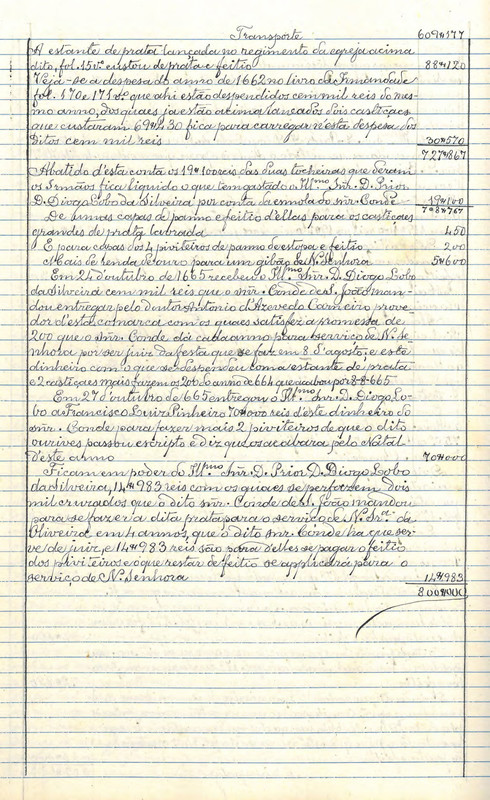 Transporte 609#177
A estante de prata lançada no regimento da egreja acima
dito, fol. 15vº custou de prata e feitio 88#120
Veja-se a despesa do anno de 1662 no livro da Irmandade
fol. 170 e 171vº que ahi estão despendidos cem mil reis do mes-
mo anno, dos quaes ja estão acima lançados dois castiçaes
que custaram 69#430 fica para carregar n'esta despesa dos
ditos cem mil reis 30#570
727#867
Abatido d'esta conta os 19#100 reis das duas tocheiras que deram
os Irmãos fica liquido o que tem gastado o Illmo Snr. D. Prior
D. Diogo Lobo da Silveira por conta da esmola do snr. Conde 19#100
708#767
De umas capas de panno e feitio d'ellas para os castiçaes
grandes de prata lavrada 450
E para capas dos 4 piviteiros de panno de estopa e feitio 200
Mais de renda de ouro para um gibão de N. Senhora 5#600
Em 24 d'outubro de 1665 recebeu o Illmo Snr. D. Diogo Lobo
da Silveira cem mil reis que o snr. Conde de S. João man-
dou entregar pelo doutor Antonio d'Azevedo Carneiro prove-
dor d'esta comarca com os quaes satisfez a promessa de
200 que o snr. Conde dá cada anno para serviço de N. Se-
nhora por ser juiz da festa que se faz em 8 d'agosto, e este
dinheiro com o que se despendeu com a estante de prata
e 2 castiçaes mais fazem os 200 do anno de 664 que acaba por 8-8-665
Em 27 d'outubro de 665 entregou o Illmo Snr. D. Diogo Lo-
bo a Francisco Luiz Pinheiro 70#000 reis d'este dinheiro do
snr. Conde para fazer mais 2 piviteiros de que o dito
ourives passou escripto e diz que os acabará pelo Natal
d'este anno 70#000
Ficam em poder do Illmo Snr. D. Prior D. Diogo Lobo
da Silveira, 14#983 reis com os quaes se perfazem dois
mil cruzados que o dito snr. Conde de S. João mandou
para se fazer a dita prata para o serviço de N. Srª da
Oliveira em 4 annos, que o dito snr. Conde ha que ser-
ve de juiz, e 14#983 reis são para d'elles se pagar o feitio
dos piviteiros e o que restar de feitio se applicará para o
serviço de N. Senhora 14#983
800#000